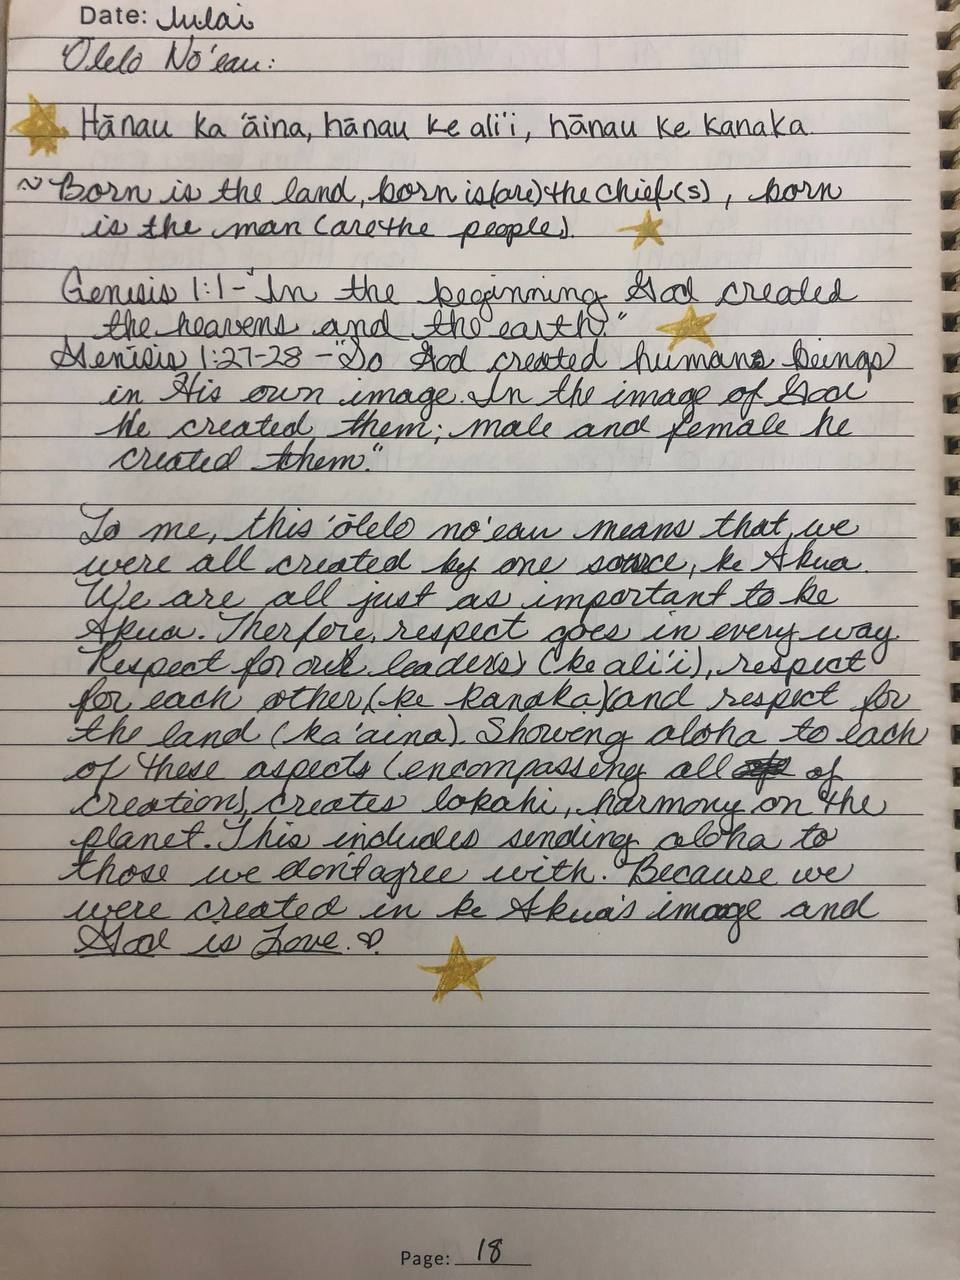 Date: Iulai
'Ōlelo No'eau:
Hānau ka 'āina, hānau ke ali'i, hānau ke kanaka.
~ Born is the land, born is(are) the chief(s), born
is the man (are the people).
Genisis 1:1 - "In the beginning God created
the heavens and the earth."
Genisis 1:27-28 - "So God created humans beings
in His own image. In the image of God
He created them; male and female he
created them."
To me, this 'ōlelo no'eau means that we
were all created by one source, ke Akua.
We are all just as important to ke
Akua. Therfore, respect goes in every way.
Respect for our leaders (ke ali'i), respect
for each other (ke kanaka) and respect for
the land (ka 'aina). Showing aloha to each
of these aspects (encompassing all of
creation), creates lokahi, harmony on the
planet. This includes sending aloha to
those we don't agree with. Because we
were created in ke Akua's image and
God is Love. ♡
Page: 18